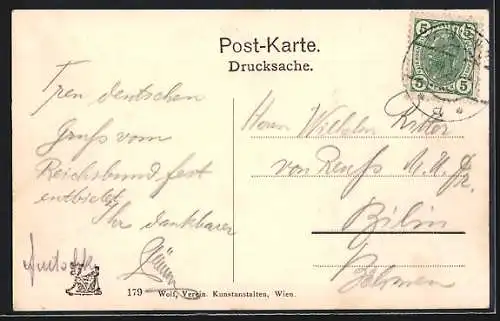 Post-Karte.
Drucksache.
5 5
5 5
Treu deutschen
Gruss vom
Reichsbund fest
entbietet
Ihr dankbarer
Herrn Wilhelm Ritter
von Reuss
Bilin
Böhmen
179 Wolf, Verein. Kunstanstalten, Wien.